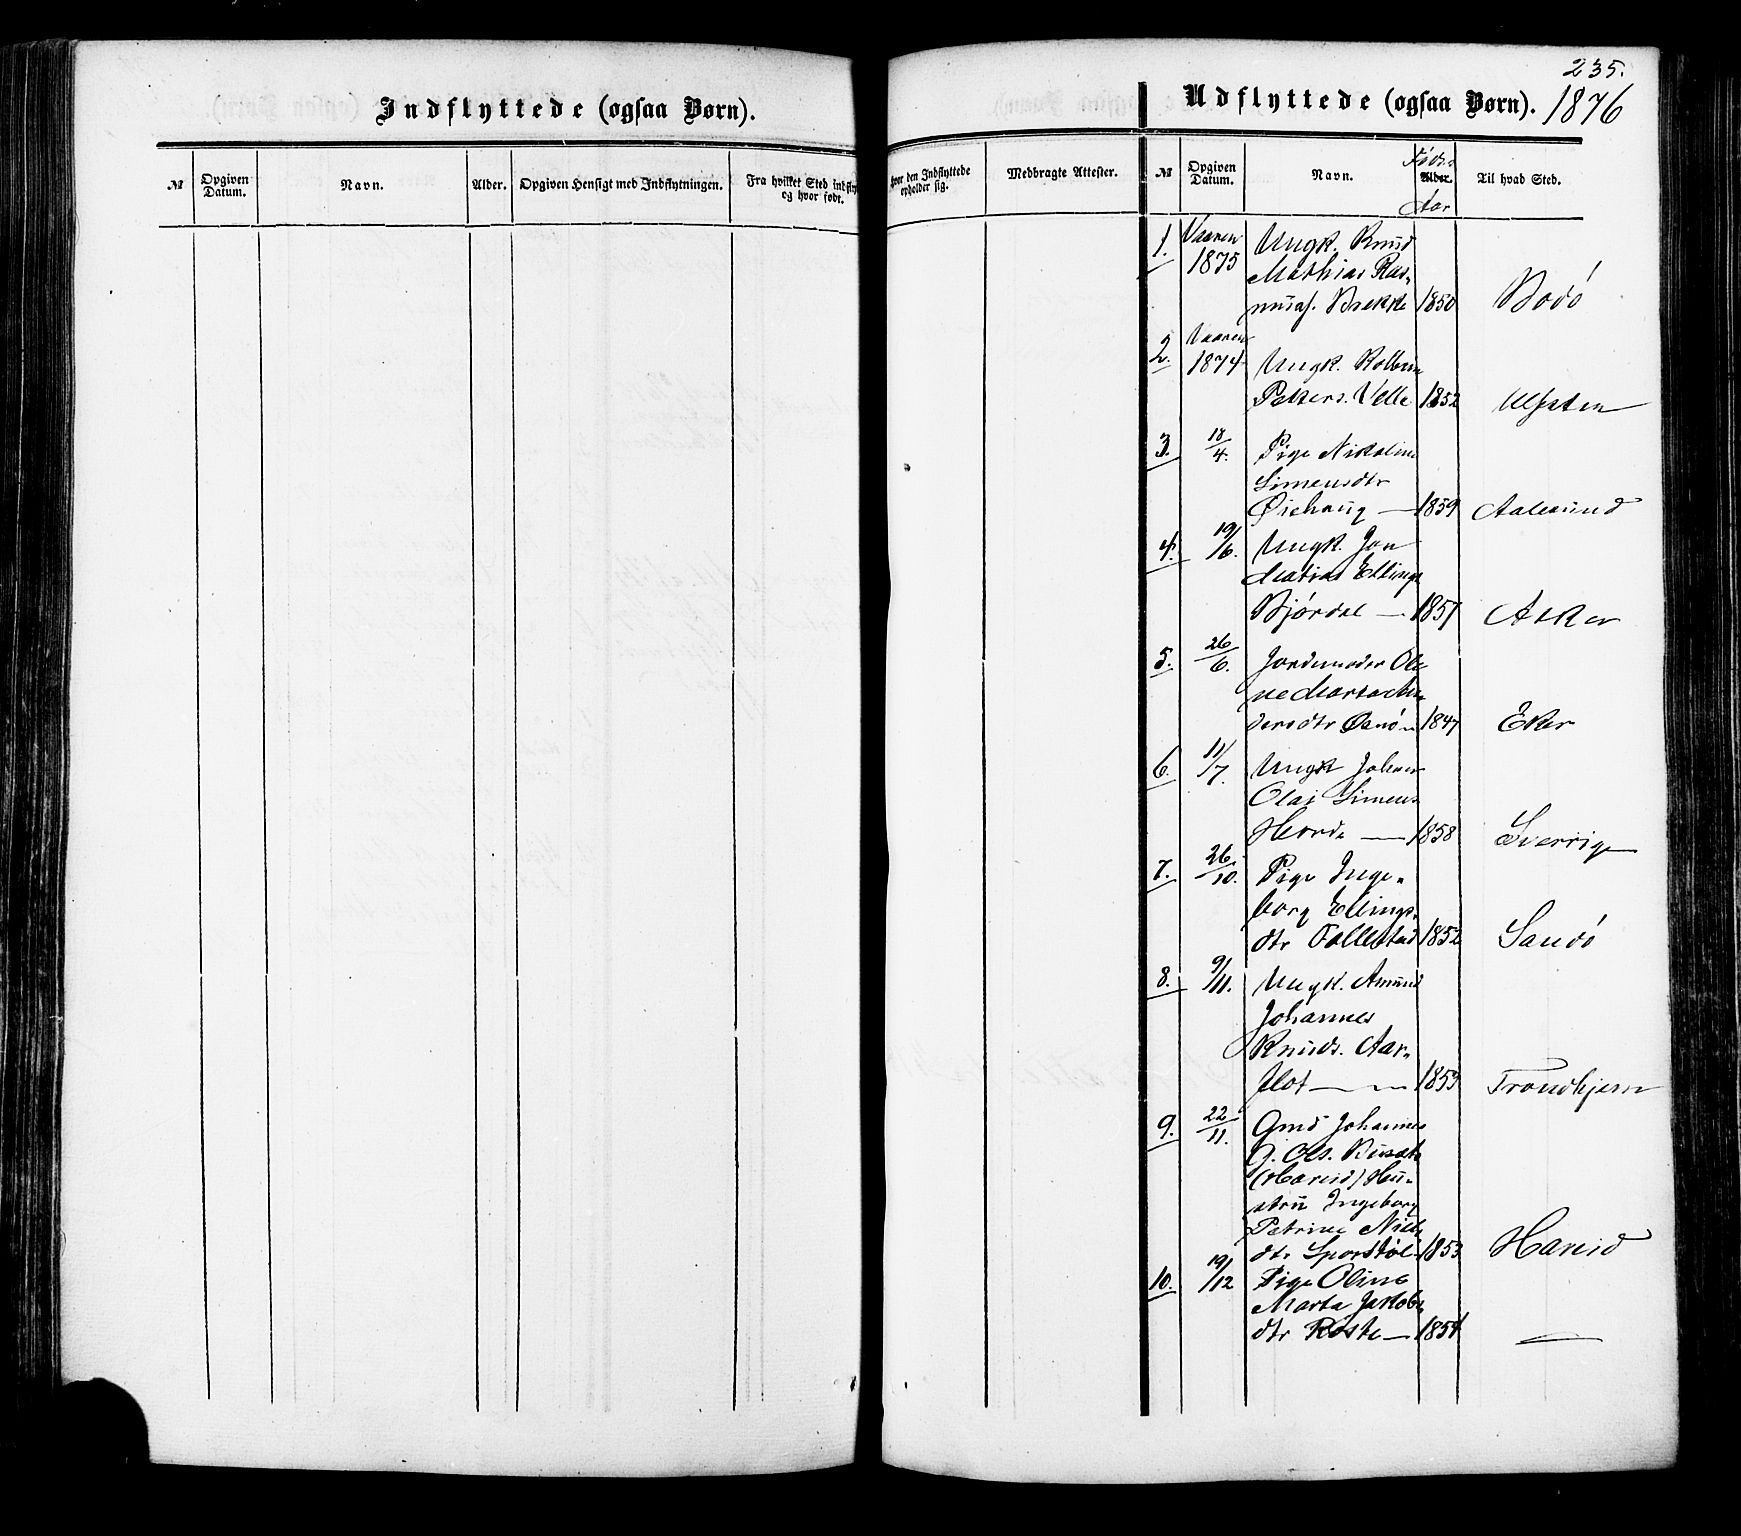 Indflyttede (ogsaa Børn).
№ Opgiven Datum. Navn. Alder. Opgiven Hensigt med Indflytningen. Fra hvilket Sted og hvor født.
hvor den Indflyttede opholder sig. Medbragte Attester.
235.
Udflyttede (ogsaa Børn). 1876
№ Opgiven Datum. Navn. Føds. Alder. Aar Til hvad Sted.
1. Vaaren Ungk. Knud
1875 Mathias Ras-
muss. Brekke 1850 Bodø
2. Vaaren
1874 Ungk. Kolbein
Petters. Velle 1852 Ulfsten
3. 18/4. Pige Nikoline
Simensdtr
Øiehaug — 1859 Aalesund
4. 19/6. Ungk. Jon
Matias Ellings.
Bjørdal — 1857 Asker
5. 26/6. Jordemoder Oli-
ne Marta An-
dersdtr 1847 Eker
6. 11/7. Ungk Johan
Olai Simens.
— 1858 Sverrige
7. 26/10. Pige Inge-
borg Ellings-
dtr 1852 Sandø
8. 9/11. Ungk. Amund
Johannes
Knuds. Aar-
flot — 1853 Trondhjem
9. 22/11. Gmd Johannes
G. Ols.
(Hareid) Hu-
stru Ingeborg
Petrine Nils-
dtr Sporstøl 1853 Hareid
10. 19/12 Pige Oline
Marta Jakobs-
dtr Roste — 1854 —